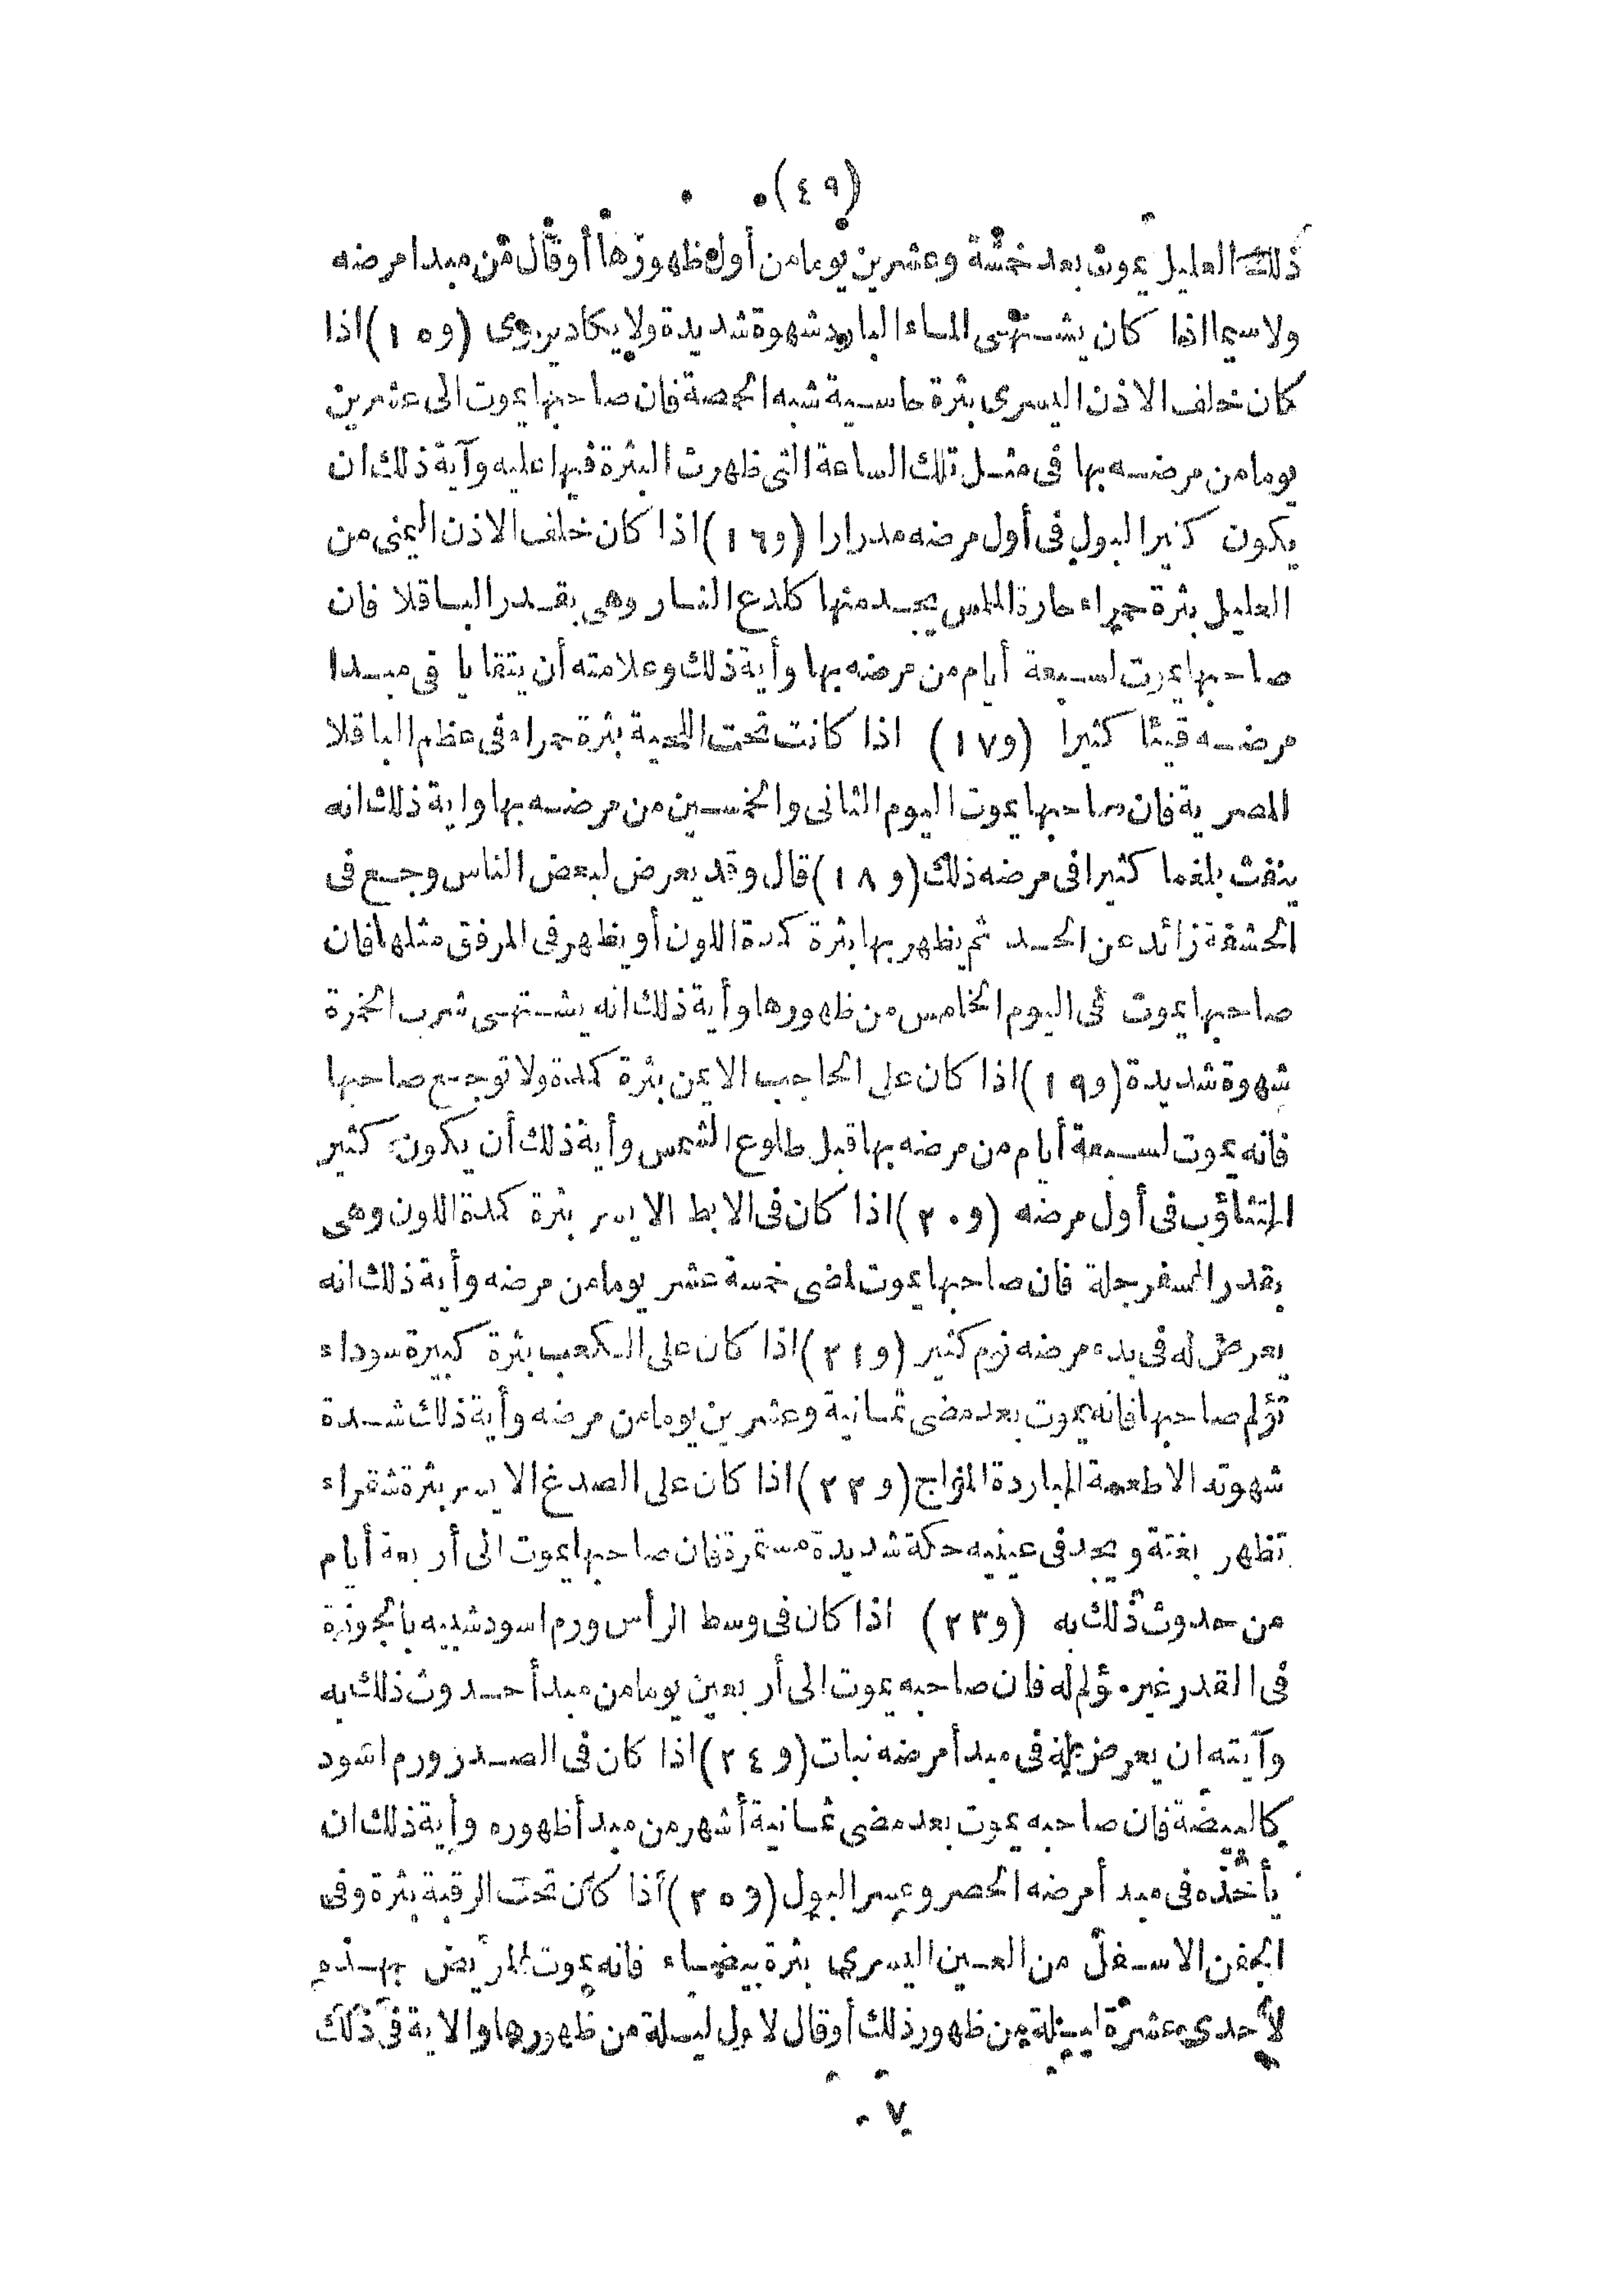 (٤٩)
ذلك العليل يموت بعد خمسة وعشرين يوما من أول ظهورها أو قال من مبدا مرضه
ولا سيما اذا كان يشتهى الماء البارد شهوة شديدة ولا يكاد يروى (و١٥) اذا
كان خلف الاذن اليسرى بثرة حاسية شبه الحمصة فان صاحبها يموت الى عشرين
يوما من مرضه بها فى مثل تلك الساعة التى ظهرت البثرة فيها عليه وآية ذلك ان
يكون كثير البول فى أول مرضه مدرارا (و١٦) اذا كان خلف الاذن اليمنى من
العليل بثرة حمراء حارة الملمس يجد منها كلدع النار وهى بقدر الباقلا فان
صاحبها يموت لسبعة أيام من مرضه بها وأية ذلك وعلامته أن يتقايا فى مبدا
مرضه قيئا كثيرا (و١٧) اذا كانت تحت اللحية بثرة حمراء فى عظم الباقلا
المصرية فان صاحبها يموت اليوم الثانى والخمسين من مرضه بها واية ذلك انه
ينفث بلغما كثيرا فى مرضه ذلك (و١٨) قال وقد يعرض لبعض الناس وجع فى
الحشفة زائد عن الحد ثم يظهر بها بثرة كدة اللون أو يظهر فى المرفق مثلها فان
صاحبها يموت فى اليوم الخامس من ظهورها وأية ذلك انه يشتهى شرب الخمرة
شهوة شديدة (و١٩) اذا كان على الحاجب الايمن بثرة كمدة ولا توجع صاحبها
فانه يموت لسبعة أيام من مرضه بها قبل طلوع الشمس وأية ذلك أن يكون كثير
التثاؤب فى أول مرضه (و٢٠) اذا كان فى الابط الايسر بثرة كمدة اللون وهى
بقدر السفرجلة فان صاحبها يموت لمضى خمسة عشر يوما من مرضه وأية ذلك انه
يعرض له فى بدء مرضه نوم كثير (و٢١) اذا كان على الكعب بثرة كبيرة سوداء
تؤلم صاحبها فانه يموت بعد مضى ثمانية وعشرين يوما من مرضه وأية ذلك شدة
شهوته الاطعمة الباردة المزاج (و٢٢) اذا كان على الصدغ الايسر بثرة شقراء
تظهر بغتة ويجد فى عينيه حكة شديدة مستمرة فان صاحبها يموت الى أربعة أيام
من حدوث ذلك به (و٢٣) اذا كان فى وسط الرأس ورم اسود شبيه بالجوزة
فى القدر غير مؤلم له فان صاحبه يموت الى أربعين يوما من مبدأ حدوث ذلك به
وآيته ان يعرض له فى مبدأ مرضه نبات (و٢٤) اذا كان فى الصدر ورم اسود
كالبيضة فان صاحبه يموت بعد مضى ثمانية أشهر من مبدأ ظهوره وأية ذلك ان
يأخذه فى مبدأ مرضه الحصر وعسر البول (و٢٥) اذا كان تحت الرقبة بثرة وفى
الجفن الاسفل من العين اليسرى بثرة بيضاء فانه يموت المريض بهذه
لاحدى عشرة ليلة من ظهور ذلك أو قال لاول ليلة من ظهورها والاية فى ذلك
٧